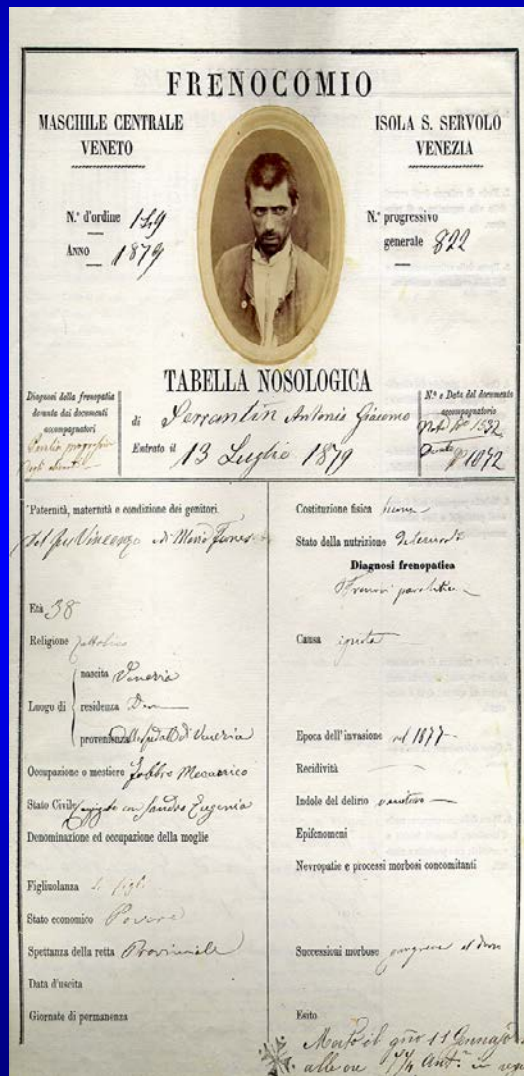 FRENOCOMIO
MASCHILE CENTRALE
VENETO
ISOLA S. SERVOLO
VENEZIA
N.° d'ordine 159
Anno 1879
N.° progressivo
generale 822
TABELLA NOSOLOGICA
Diagnosi della frenopatia
desunta dai documenti
accompagnatori
di Serrantin Antonio Giacomo
Entrato il 13 Luglio 1879
N.° e Data del documento
accompagnatorio
1532
1072
Paternità, maternità e condizione dei genitori.
Vincenzo di Maria
Età 38
Religione Cattolica
Luogo di
nascita Venezia
residenza
provenienza di Venezia
Occupazione o mestiere Fabbro Meccanico
Stato Civile Coniugato con Sandre Eugenia
Denominazione ed occupazione della moglie
Figliuolanza
Stato economico Povero
Spettanza della retta Provinciale
Data d'uscita
Giornate di permanenza
Costituzione fisica buona
Stato della nutrizione
Diagnosi frenopatica
Frenosi paralitica
Causa ignota
Epoca dell'invasione nel 1877
Recidività
Indole del delirio
Epifenomeni
Nevropatie e processi morbosi concomitanti
Successioni morbose
Esito
Morto il 11 Gennajo
alle ore ant.